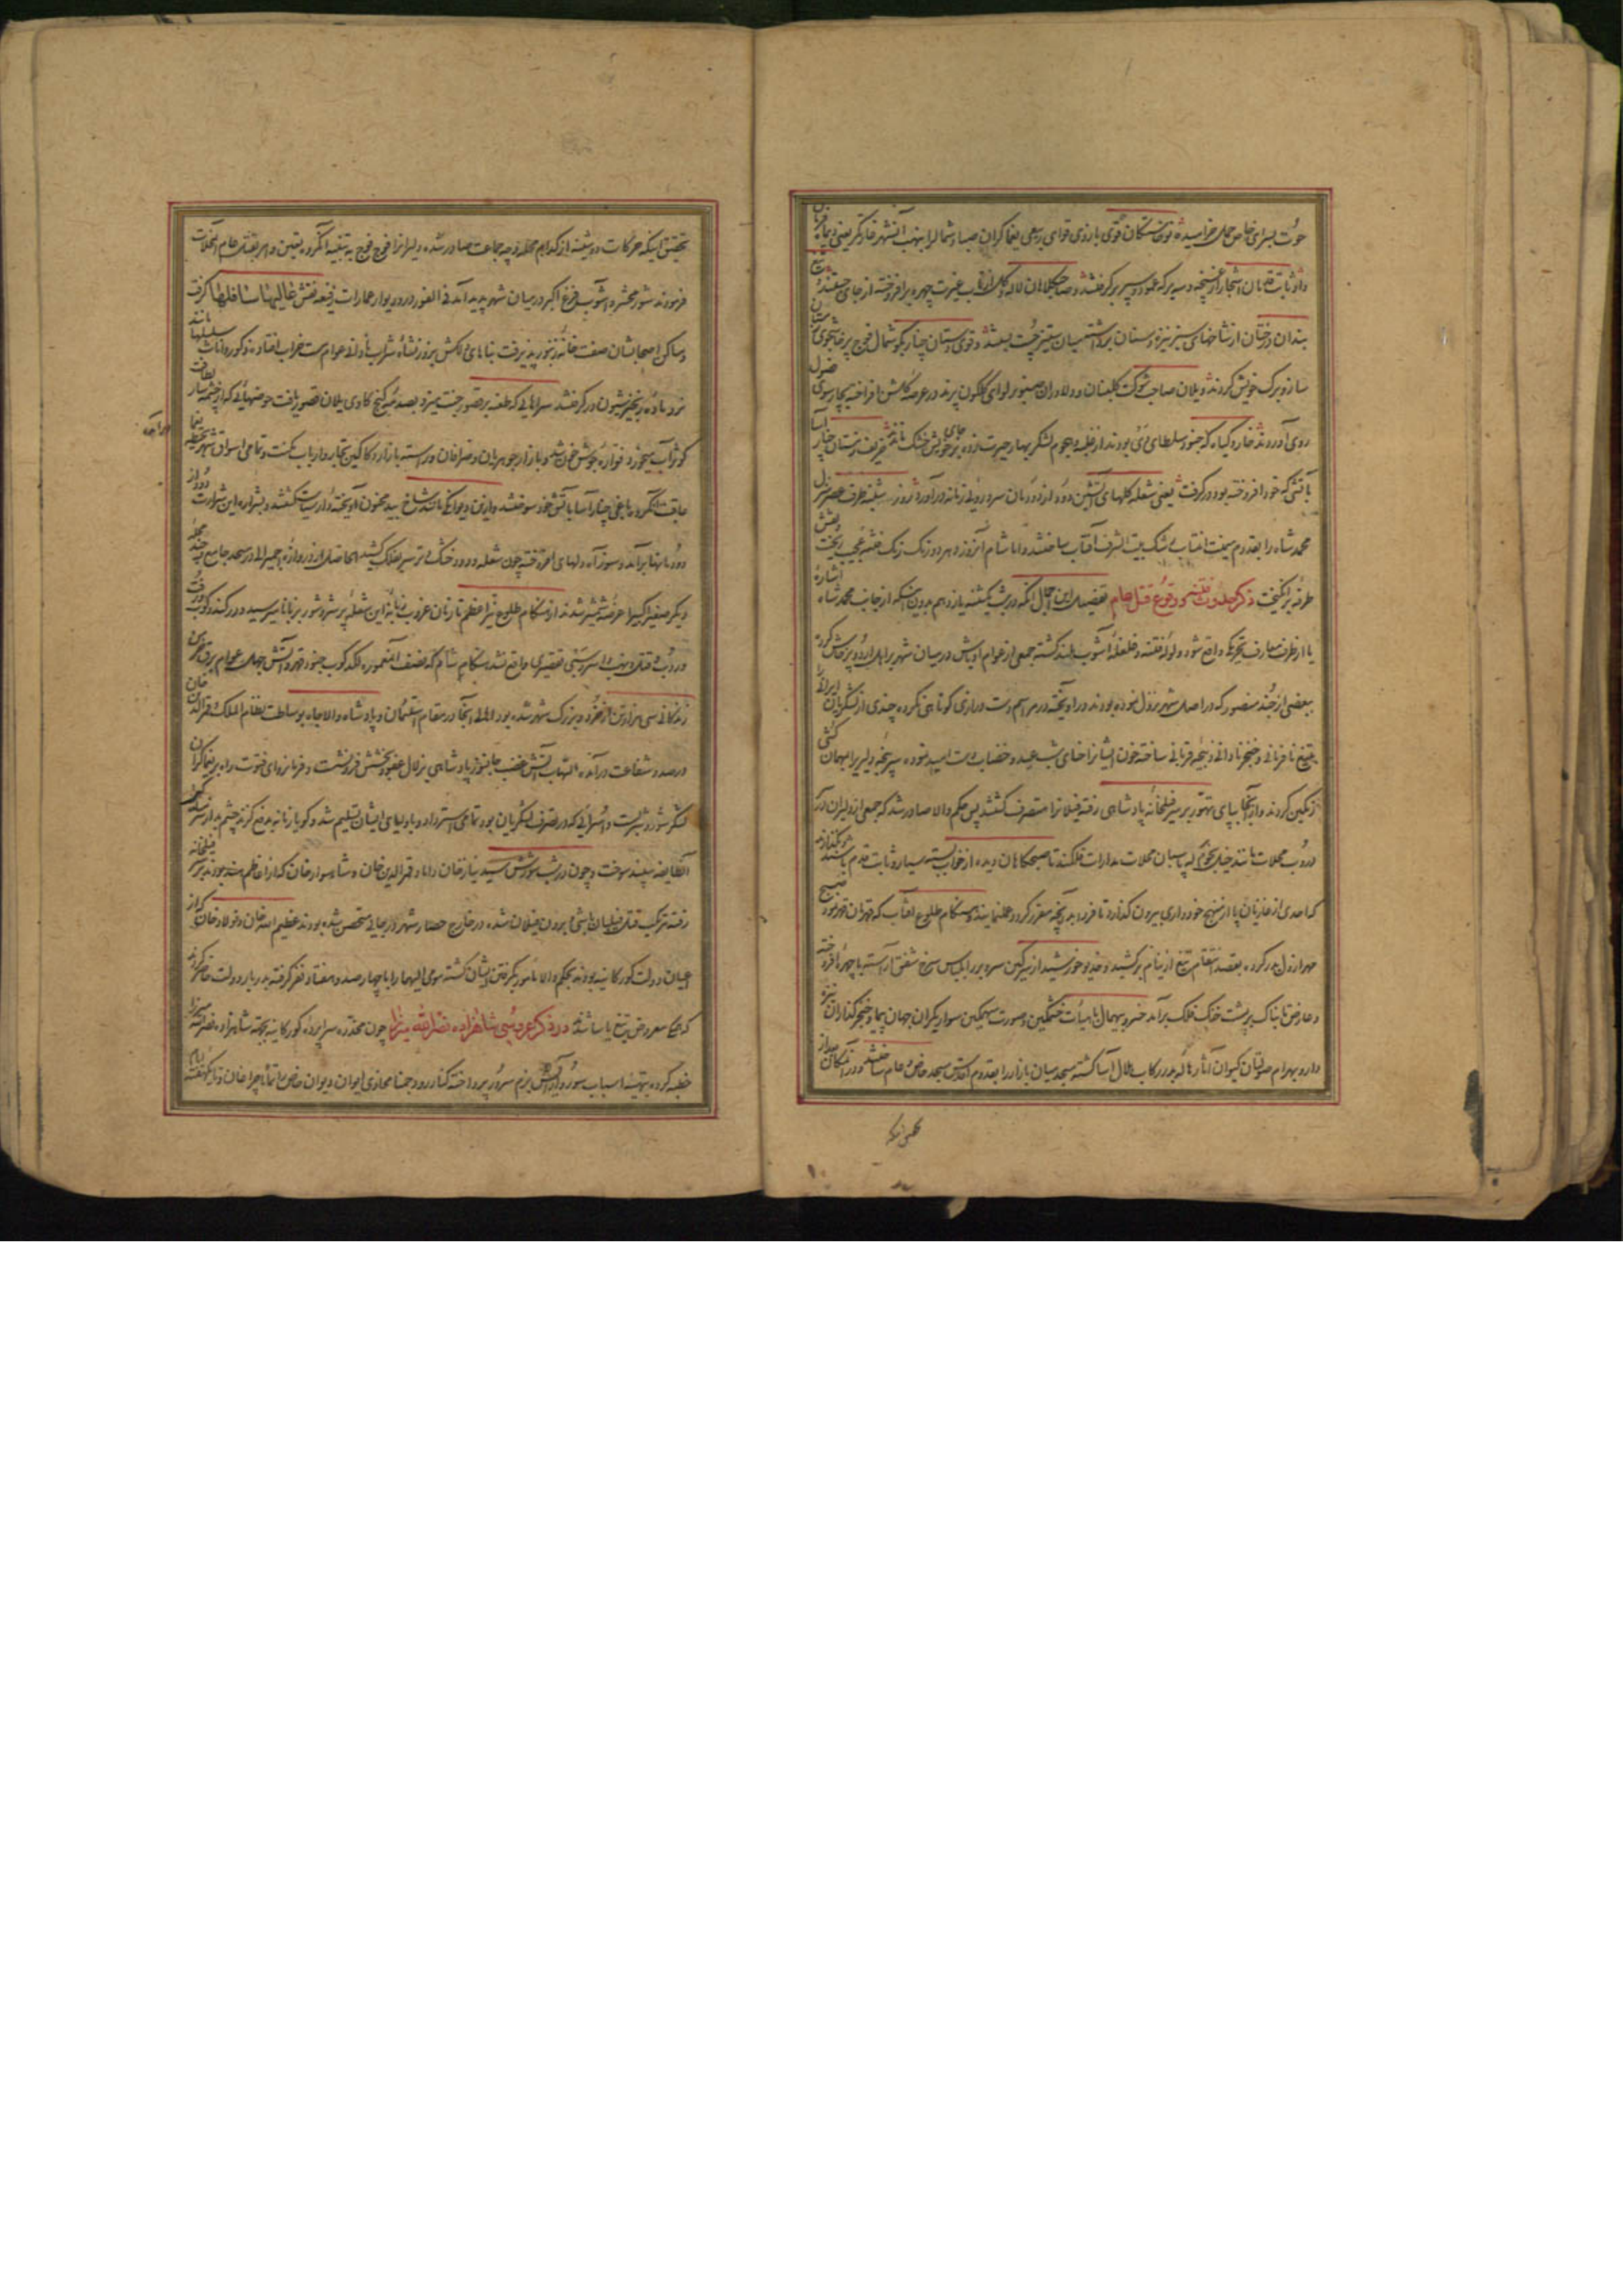 حوت بسرای خاص حمل خرامیده قوی دستگان قوی بازوی قوای ربیعی یغماگران صبا و شمال را بنهب آن شهر غارتگر یعنی دیماه فرمان
داد ثابت قدمان اشجار از غنچه و سه برگه عمود و سپر برگرفتند و صاحب کلاهان لاله و گل از تاب غیرت چهره برافروخته از جای جستند
بندان درختان از شاخهای سبز نیزه و سنان برداشته میان ستیز چست بستند و قوی دستان چنار بگوشمال فوج
ساز و برگ خویش کردند و یلان صاحب شوکت گلبنان و دلاوران صنوبر لوای گلگون پرند در عرصه گلشن افراخته
روی آوردند خار و گیاه که جنود سلطان دی بودند از غلبه و هجوم لشکر بهار حیرت زده بر جای خویش خشک ماندند حریف زمستان چنار آسا
بآتشی که خود افروخته بود درگرفت یعنی شعله گلهای آتشین دود از دودمان سرد روی زمانه درآورد و روز
محمد شاه را بقدوم میمنت انتساب رشک بیت الشرف آفتاب ساختند و اما شام آنروز دهر دو رنگ رنگ فتنه عجیب ریخت نقش
طرفه برانگیخت ذکر حدوث فتنه و وقوع قتل عام تفصیل این اجمال آنکه در شب یکشنبه یازدهم بدون اینکه از جانب محمد شاه اشاره
یا از طرف معارف تحریکی واقع شود ولوله فتنه و غلغله آشوب بلند گشته جمعی از عوام اوباش در میان شهر بر اهل اردو پرخاش کرده
ببعضی از جند منصور که در اصل شهر نزول نموده بودند درآویخته در مراسم دست درازی کوتاهی نکرده چندی از لشکریان ایرانرا
بتیغ نافرمانی و خنجر نادانی ذبیحه قربانی ساخته خون ایشانرا حنای شب عید و خضاب دست امید نموده سرپنجه دلیری را بمهمان کشی
رنگین کردند و از آنجا بپای تهور بر سر فیلخانه پادشاهی رفته فیلانرا متصرف گشتند پس حکم والا صادر شد که جمعی از دلیران در
دروب محلات مانند خیل نجوم که پاسبان محلات مدارات فلکند تا صبحگاهان دیده از خواب بسته سیار و ثابت قدم باشند و نگذارند
که احدی از غازیان پا از نهج خودداری بیرون گذارد تا فردا بدانچه مقرر گردد عمل نمایند و هنگام طلوع آفتاب که قهرمان قهر نمود صبح
مهر از دل بدر کرده بقصد انتقام تیغ از نیام برکشید و خدیو خورشید از زیرین سریر لباس سرخ شفق آراسته با چهره افروخته
و عارض تابناک بر پشت خنگ فلک برآمد خسرو بیهمال با هیأت خشمگین و صورت سهمگین سوار یکران جهان پیما و خنجر گذاران نیزه
دار و بهرام صولتان کیوان آثار هاله بدر رکاب هلال آسا گشته مسجد میان بازار را بقدوم اقدس مسجد خاص و عام ساختند و در آن مکان بعد از
تحقیق اینکه حرکات دوشینه از کدام محله و چه جماعت صادر شده دلیرانرا فوج فوج به تنبیه آن گروه تعیین و امر بقتل عام آن محلات
فرمودند شور محشر و آشوب فزع اکبر در میان شهر پدید آمد فی الفور در و دیوار عمارات رفیعه نقش عالیها سافلها گرفت
و مساکن اصحابشان صفت خانه زنبور پذیرفت بناهای دلکش بزور نشاه شراب نادانی عوام مست خراب افتاده و ذکور و اناث مانند
نر و ماده زنجیر شیون درگرفتند سراهائی که طعنه بر قصور جنت میزد بصدمه گنج کاوی یلان قصور یافت حوضهائی که از چشمه سار لطافت
کوثر آب میخورد فواره جوش خون شد و بازار جوهریان و صرافان و راسته بازار و دکاکین تجار و ارباب مکنت و تمامی اسواق شهر یغما
عاقبت آن گروه یاغی چنار آسا بآتش خود سوختند و از آن دیوانگی مانند شاخ بید مجنون آویخته دار سیاست گشتند و بشراره این شرارت دود از
دودمانها برآمد و سوز آه دلهای افروخته چون شعله و دود خشک و تر سر بفلک کشید الحاصل از دروازه اجمیر الی در مسجد جامع و چند محله
دیگر صغیر و کبیر را عرضه شمشیر شدند از هنگام طلوع نیر اعظم تا زمان غروب زبانه این شعله پر شر و شور بزبانا میرسید و در کند و کوب و رفت
و روب و قتل و نهب و اسر و سبی تقصیری واقع نشد هنگام شام که نصف آن معموره لگدکوب جنود قهر و آتش جهل عوام برق خرمن
زندگانی سی هزار تن از خرد و بزرگ شهر شده بود اهالی آنجا در مقام استیمان و پادشاه والاجاه بوساطت نظام الملک و قمر الدین خان
درصدد شفاعت درآمده التهاب آتش غضب جانسوز پادشاهی بزلال عفو و بخشش فرونشست و فرمانروای فتوت راه بر یغماگران
لشکر شور و شر بست و اسرائی که در تصرف لشکریان بود تمامی استرداد و باولیای ایشان تسلیم شد و گویا زمانه بدفع گزند چشم بد
آن طایفه سپند سوخت و چون در شب شورش سید نیاز خان داماد قمر الدین خان و شاهسوار خان که از اعاظم هند بودند بر سر فیلخانه
رفته مرتکب قتل فیلبان باشی و بردن فیلان شده در خارج حصار شهر در جائی متحصن شده بودند عظیم الله خان و فولاد خان که از
اعیان دولت گورکانیه بودند بحکم والا مامور بگرفتن ایشان گشته مومی الیهما را با چهارصد و هفتاد نفر گرفته بدربار دولت حاضر کردند
که همگی معروض تیغ یاسا شدند در ذکر عروسی شاهزاده نصرالله میرزا چون مخدره سراپرده گورکانیه بجهته شاهزاده نصرالله میرزا
خطبه کرده بتهیه اسباب سور و آرایش بزم سرور پرداخته کنار رود جمنا محاذی ایوان دیوان خاص را تماما چراغان و تا یکهفته ایام